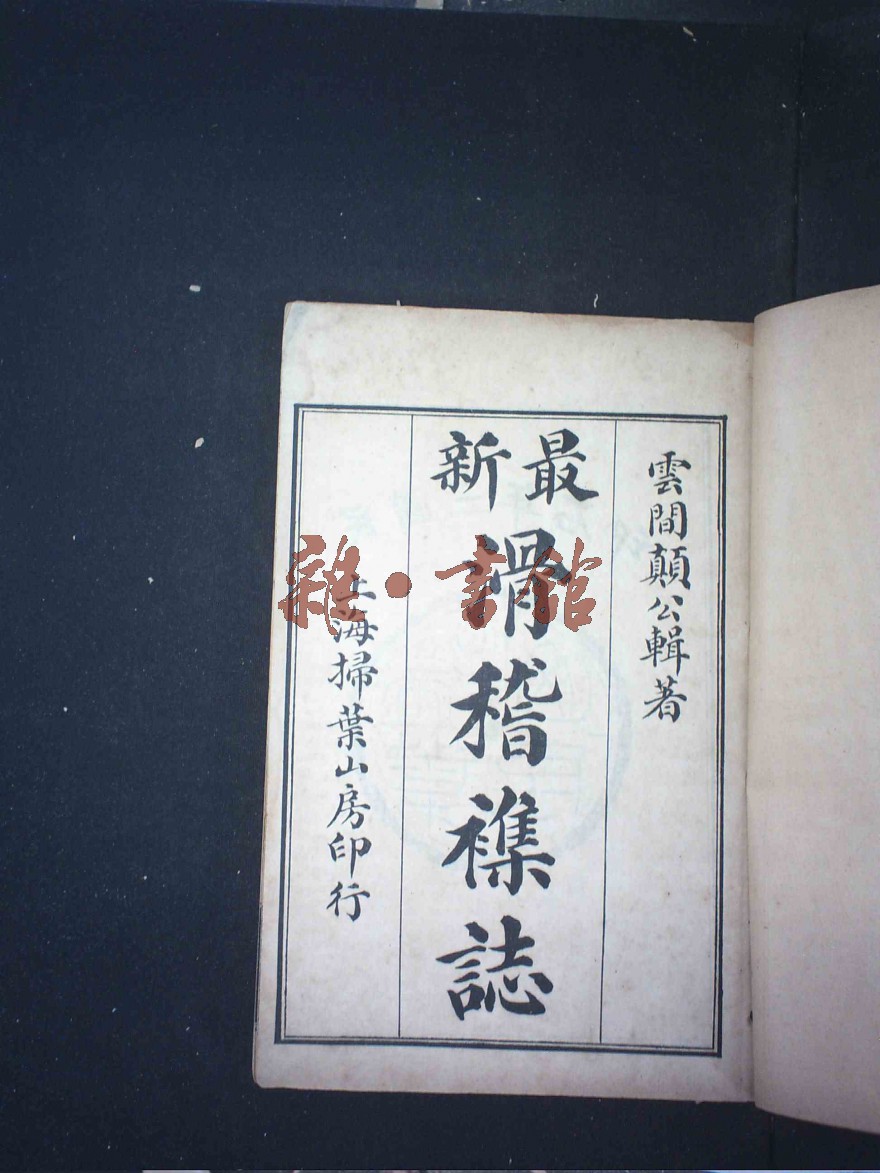 雲間顛公輯著
最新
滑稽襍誌
上海掃葉山房印行
雜·書館